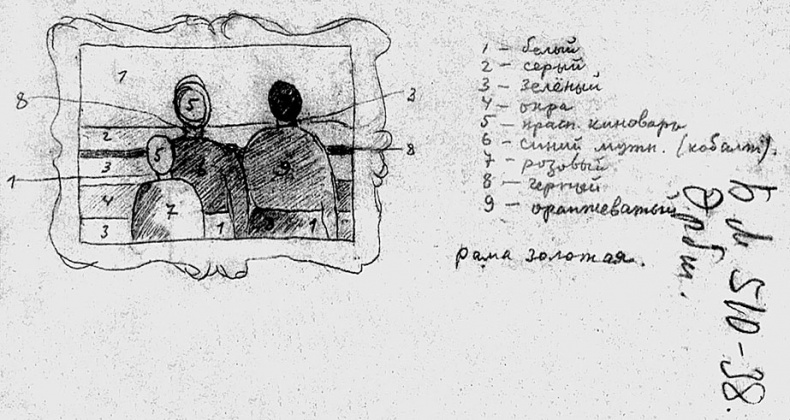 1 – белый
2 – серый
3 – зелёный
4 – охра
5 – красн. киноварь
6 – синий мутн. (кобальт).
7 – розовый
8 – черный
9 – оранжеватый
рама золотая.
1
8
5
3
2
5
8
3
6
9
1
4
7
3
1
8
1
510-38